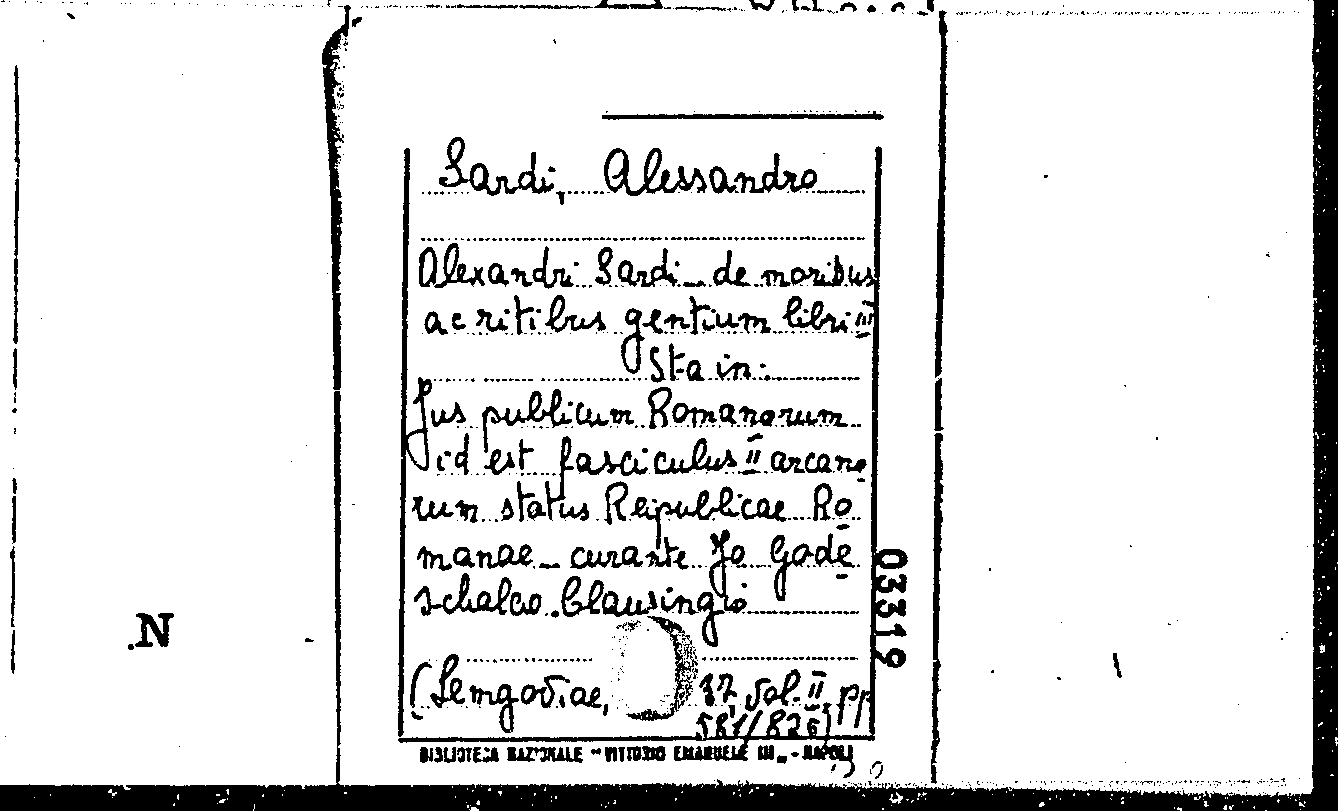 Sardi, Alessandro
Alexandri Sardi _ de moribus
ac ritibus gentium libri III
Sta in:
Jus publicum Romanorum
id est fasciculus II arcano
rum status Reipublicae Ro
manae _ curante Jo Gode
schalco Clausingio
(Lemgoviae, 37, Vol. II, pp
581/826)
BIBLIOTECA NAZIONALE "VITTORIO EMANUELE III" - NAPOLI
03319
.N